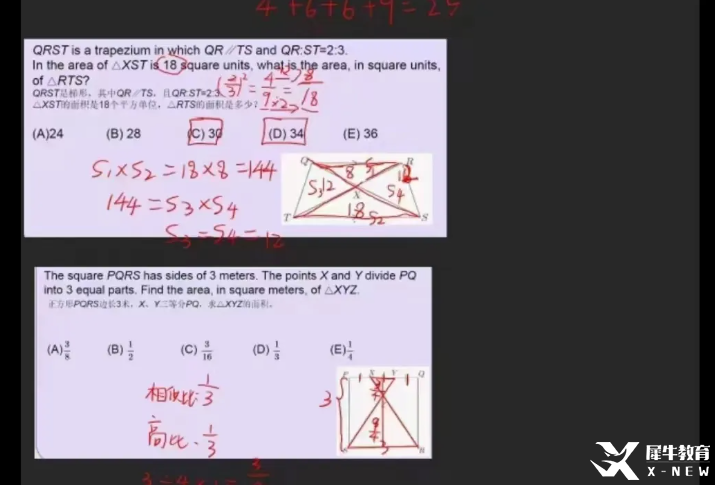 4+6+6+9=25
QRST is a trapezium in which QR∥TS and QR:ST=2:3.
In the area of △XST is 18 square units, what is the area, in square units,
of △RTS?
QRST是梯形，其中QR∥TS，且QR:ST=2:3.
△XST的面积是18个平方单位，△RTS的面积是多少？
(2/3)² = 4/9 = 8/18
×2
(A)24 (B) 28 (C) 30 (D) 34 (E) 36
S1×S2=18×8=144
144=S3×S4
S3=S4=12
Q R
8 S2 12
S3 12 X S4
T 18 S2 S
The square PQRS has sides of 3 meters. The points X and Y divide PQ
into 3 equal parts. Find the area, in square meters, of △XYZ.
正方形PQRS边长3米，X、Y三等分PQ，求△XYZ的面积。
(A) 3/8 (B) 1/2 (C) 3/16 (D) 1/3 (E) 1/4
相似比 1/3
高比 1/3
P 1 X Y 1 Q
3
9/4
3 R
犀牛教育
X-NEW